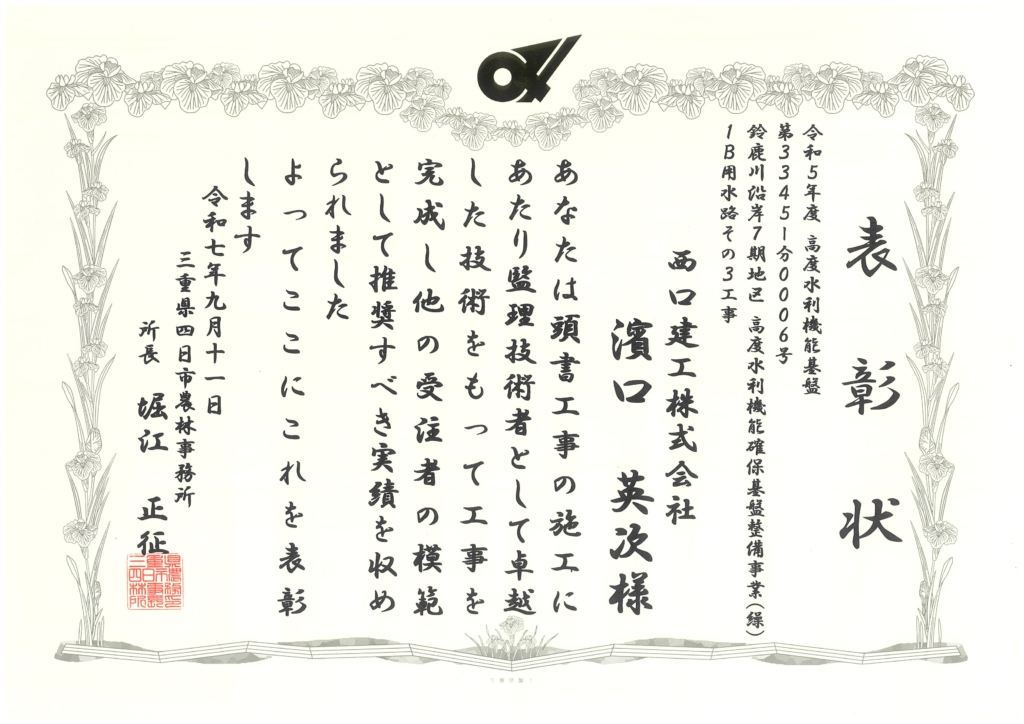 表彰状
令和5年度 高度水利機能基盤
第3345-分0006号
鈴鹿川沿岸7期地区 高度水利機能確保基盤整備事業(繰)
1B用水路その3工事
西口建工株式会社
濱口 英次様
あなたは頭書工事の施工に
あたり監理技術者として卓越
した技術をもって工事を
完成し他の受注者の模範
として推奨すべき実績を収め
られました
よってここにこれを表彰
します
令和七年九月十一日
三重県四日市農林事務所
所長 堀江 正征